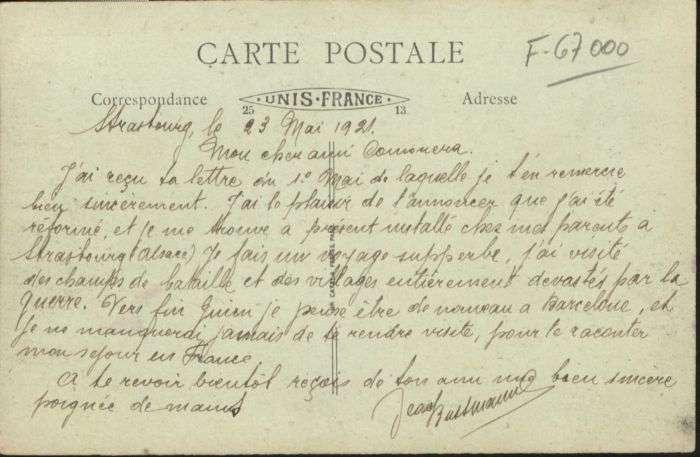 CARTE POSTALE
F-67000
Correspondance
UNIS-FRANCE
25
13.
Adresse
Strasbourg, le 23 Mai 1921.
Mon cher ami Comorera.
J'ai reçu ta lettre du 1º Mai de laquelle je t'en remercie
bien sincerement. J'ai le plaisir de t'annoncer que j'ai été
réformé, et je me trouve a présent installé chez mes parents a
Strasbourg (Alsace) Je fais un voyage supperbe, j'ai visité
des champs de bataille et des villages entièrement devastés par la
guerre. Vers fin je pense être de nouveau a Barcelone, et
je ne manquerai jamais de te rendre visite, pour te raconter
mon sejour en France
A te revoir bientôt reçois de ton ami une bien sincère
poignée de mains
Jean Bussmann